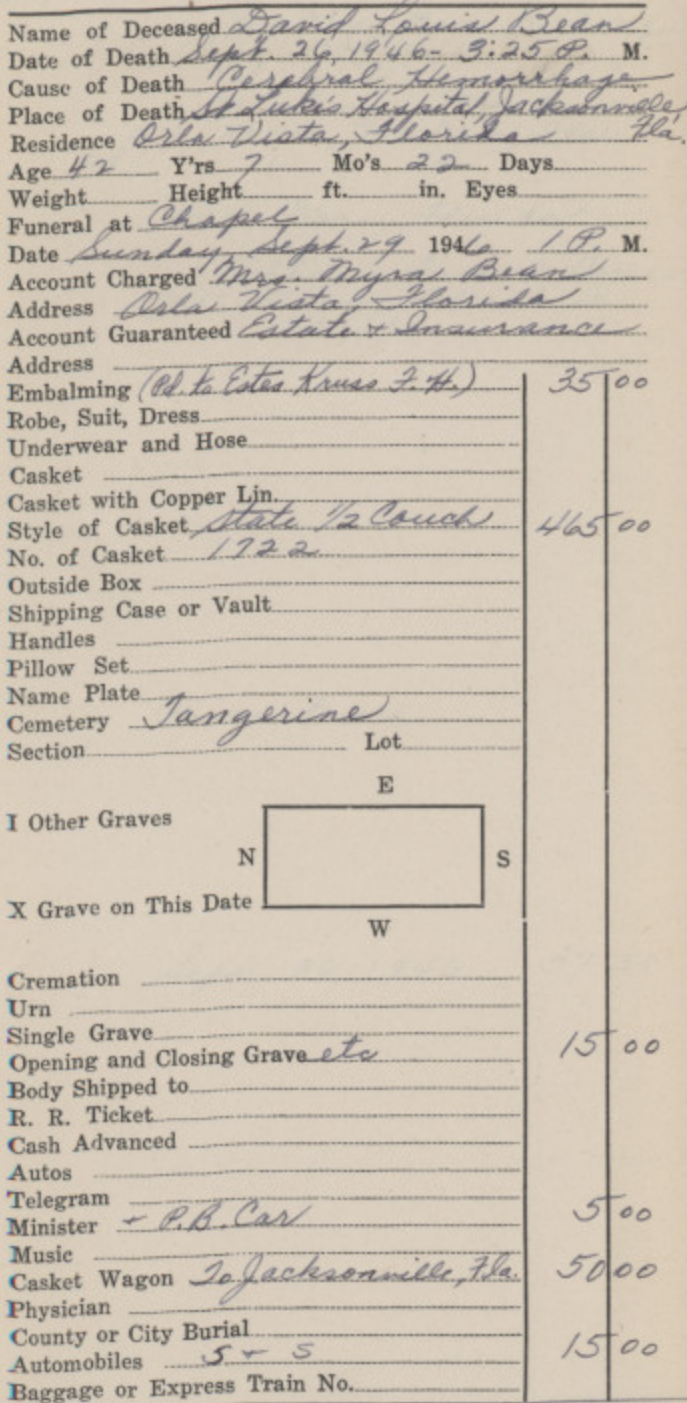 Name of Deceased David Louis Bean
Date of Death Sept. 26, 1946 - 3:25 P. M.
Cause of Death Cerebral Hemorrhage
Place of Death St Luke's Hospital, Jacksonville, Fla.
Residence Orla Vista, Florida
Age 42 Y'rs 7 Mo's 22 Days
Weight Height ft. in. Eyes
Funeral at Chapel
Date Sunday, Sept. 29 1946 1 P. M.
Account Charged Mrs. Myra Bean
Address Orla Vista, Florida
Account Guaranteed Estate + Insurance
Address
Embalming (Pd. to Estes Kruss F. H.) 35 00
Robe, Suit, Dress
Underwear and Hose
Casket
Casket with Copper Lin.
Style of Casket State 1/2 Couch 465 00
No. of Casket 1722
Outside Box
Shipping Case or Vault
Handles
Pillow Set
Name Plate
Cemetery Tangerine
Section Lot
E
I Other Graves
N S
X Grave on This Date
W
Cremation
Urn
Single Grave
Opening and Closing Grave etc 15 00
Body Shipped to
R. R. Ticket
Cash Advanced
Autos
Telegram
Minister + P.B. Car 5 00
Music
Casket Wagon To Jacksonville, Fla. 50 00
Physician
County or City Burial
Automobiles 5 + 5 15 00
Baggage or Express Train No.